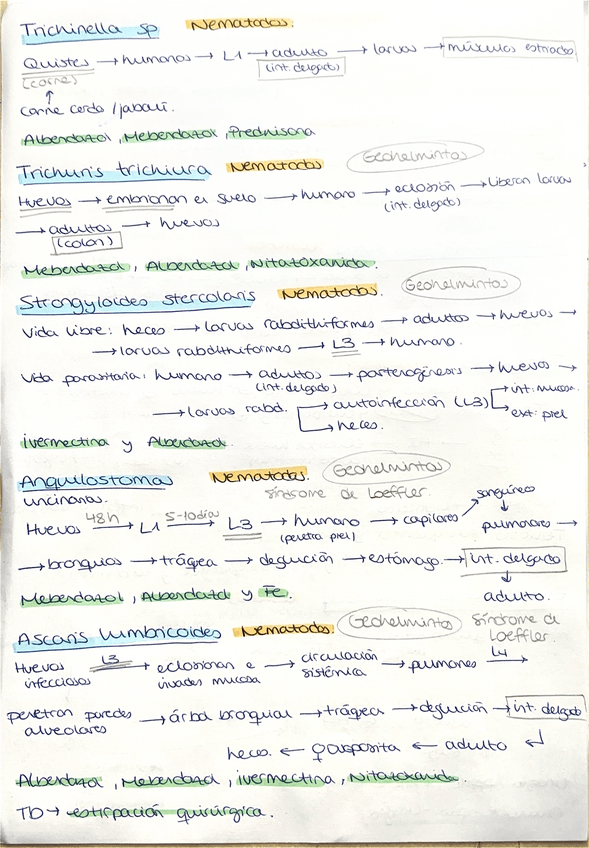 Trichinella sp Nematodos.
Quistes → humanos → L1 → adulto → larvas → músculos estriados
(carne) (int. delgado)
↑
carne cerdo / jabalí.
Albendazol, Mebendazol, Prednisona
Trichuris trichiura Nematodos Geohelmintos
Huevos → embrionan el suelo → humano → eclosión → liberan larvas
(int. delgado)
→ adultos → huevos
(colon)
Mebendazol, Albendazol, Nitatoxanida.
Strongyloides stercolaris Nematodos. Geohelmintos
Vida libre: heces → larvas rabdithiformes → adultos → huevos →
→ larvas rabdithiformes → L3 → humano.
Vida parasitaria: humano → adultos → partenogénesis → huevos →
(int. delgado)
→ larvas rabd. → autoinfección (L3) → int: mucosa.
→ ext: piel
→ heces.
ivermectina y Albendazol.
Anquilostoma Nematodos. Geohelmintos
uncinarias. síndrome de Loeffler.
Huevos 48h → L1 5-10días → L3 → humano → capilares → sanguíneo
(penetra piel) ↓ pulmonares →
→ bronquios → tráquea → deglución → estómago. → int. delgado
↓
adulto.
Mebendazol, Albendazol y Fe.
Ascaris lumbricoide Nematodos. Geohelmintos síndrome de
Loeffler.
Huevos L3 → eclosionan e → circulación → pulmones L4 →
infecciosos invades mucosa sistémica
penetran paredes → árbol bronquial → tráquea → deglución → int. delgado
alveolares
heces ← ♀ ovoposita ← adulto ↵
Albendazol, Mebendazol, ivermectina, Nitatoxanida.
TD → extirpación quirúrgica.